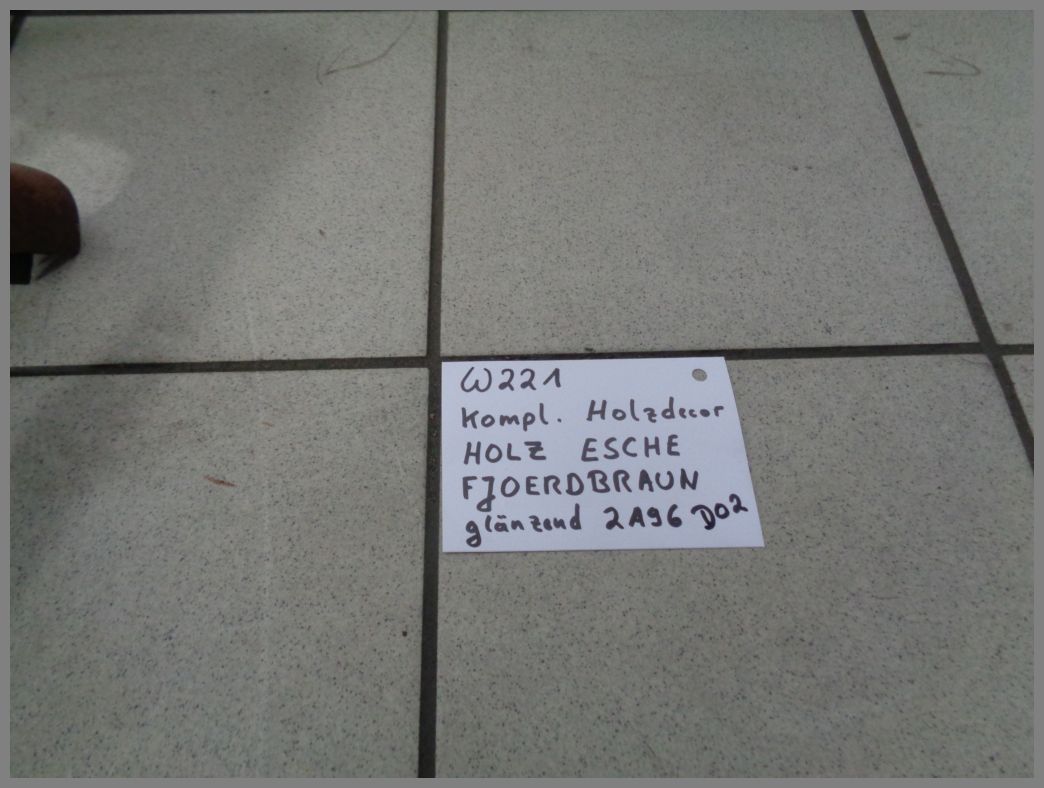 W221
Kompl. Holzdecor
HOLZ ESCHE
FJOERDBRAUN
glänzend 2A96 D02